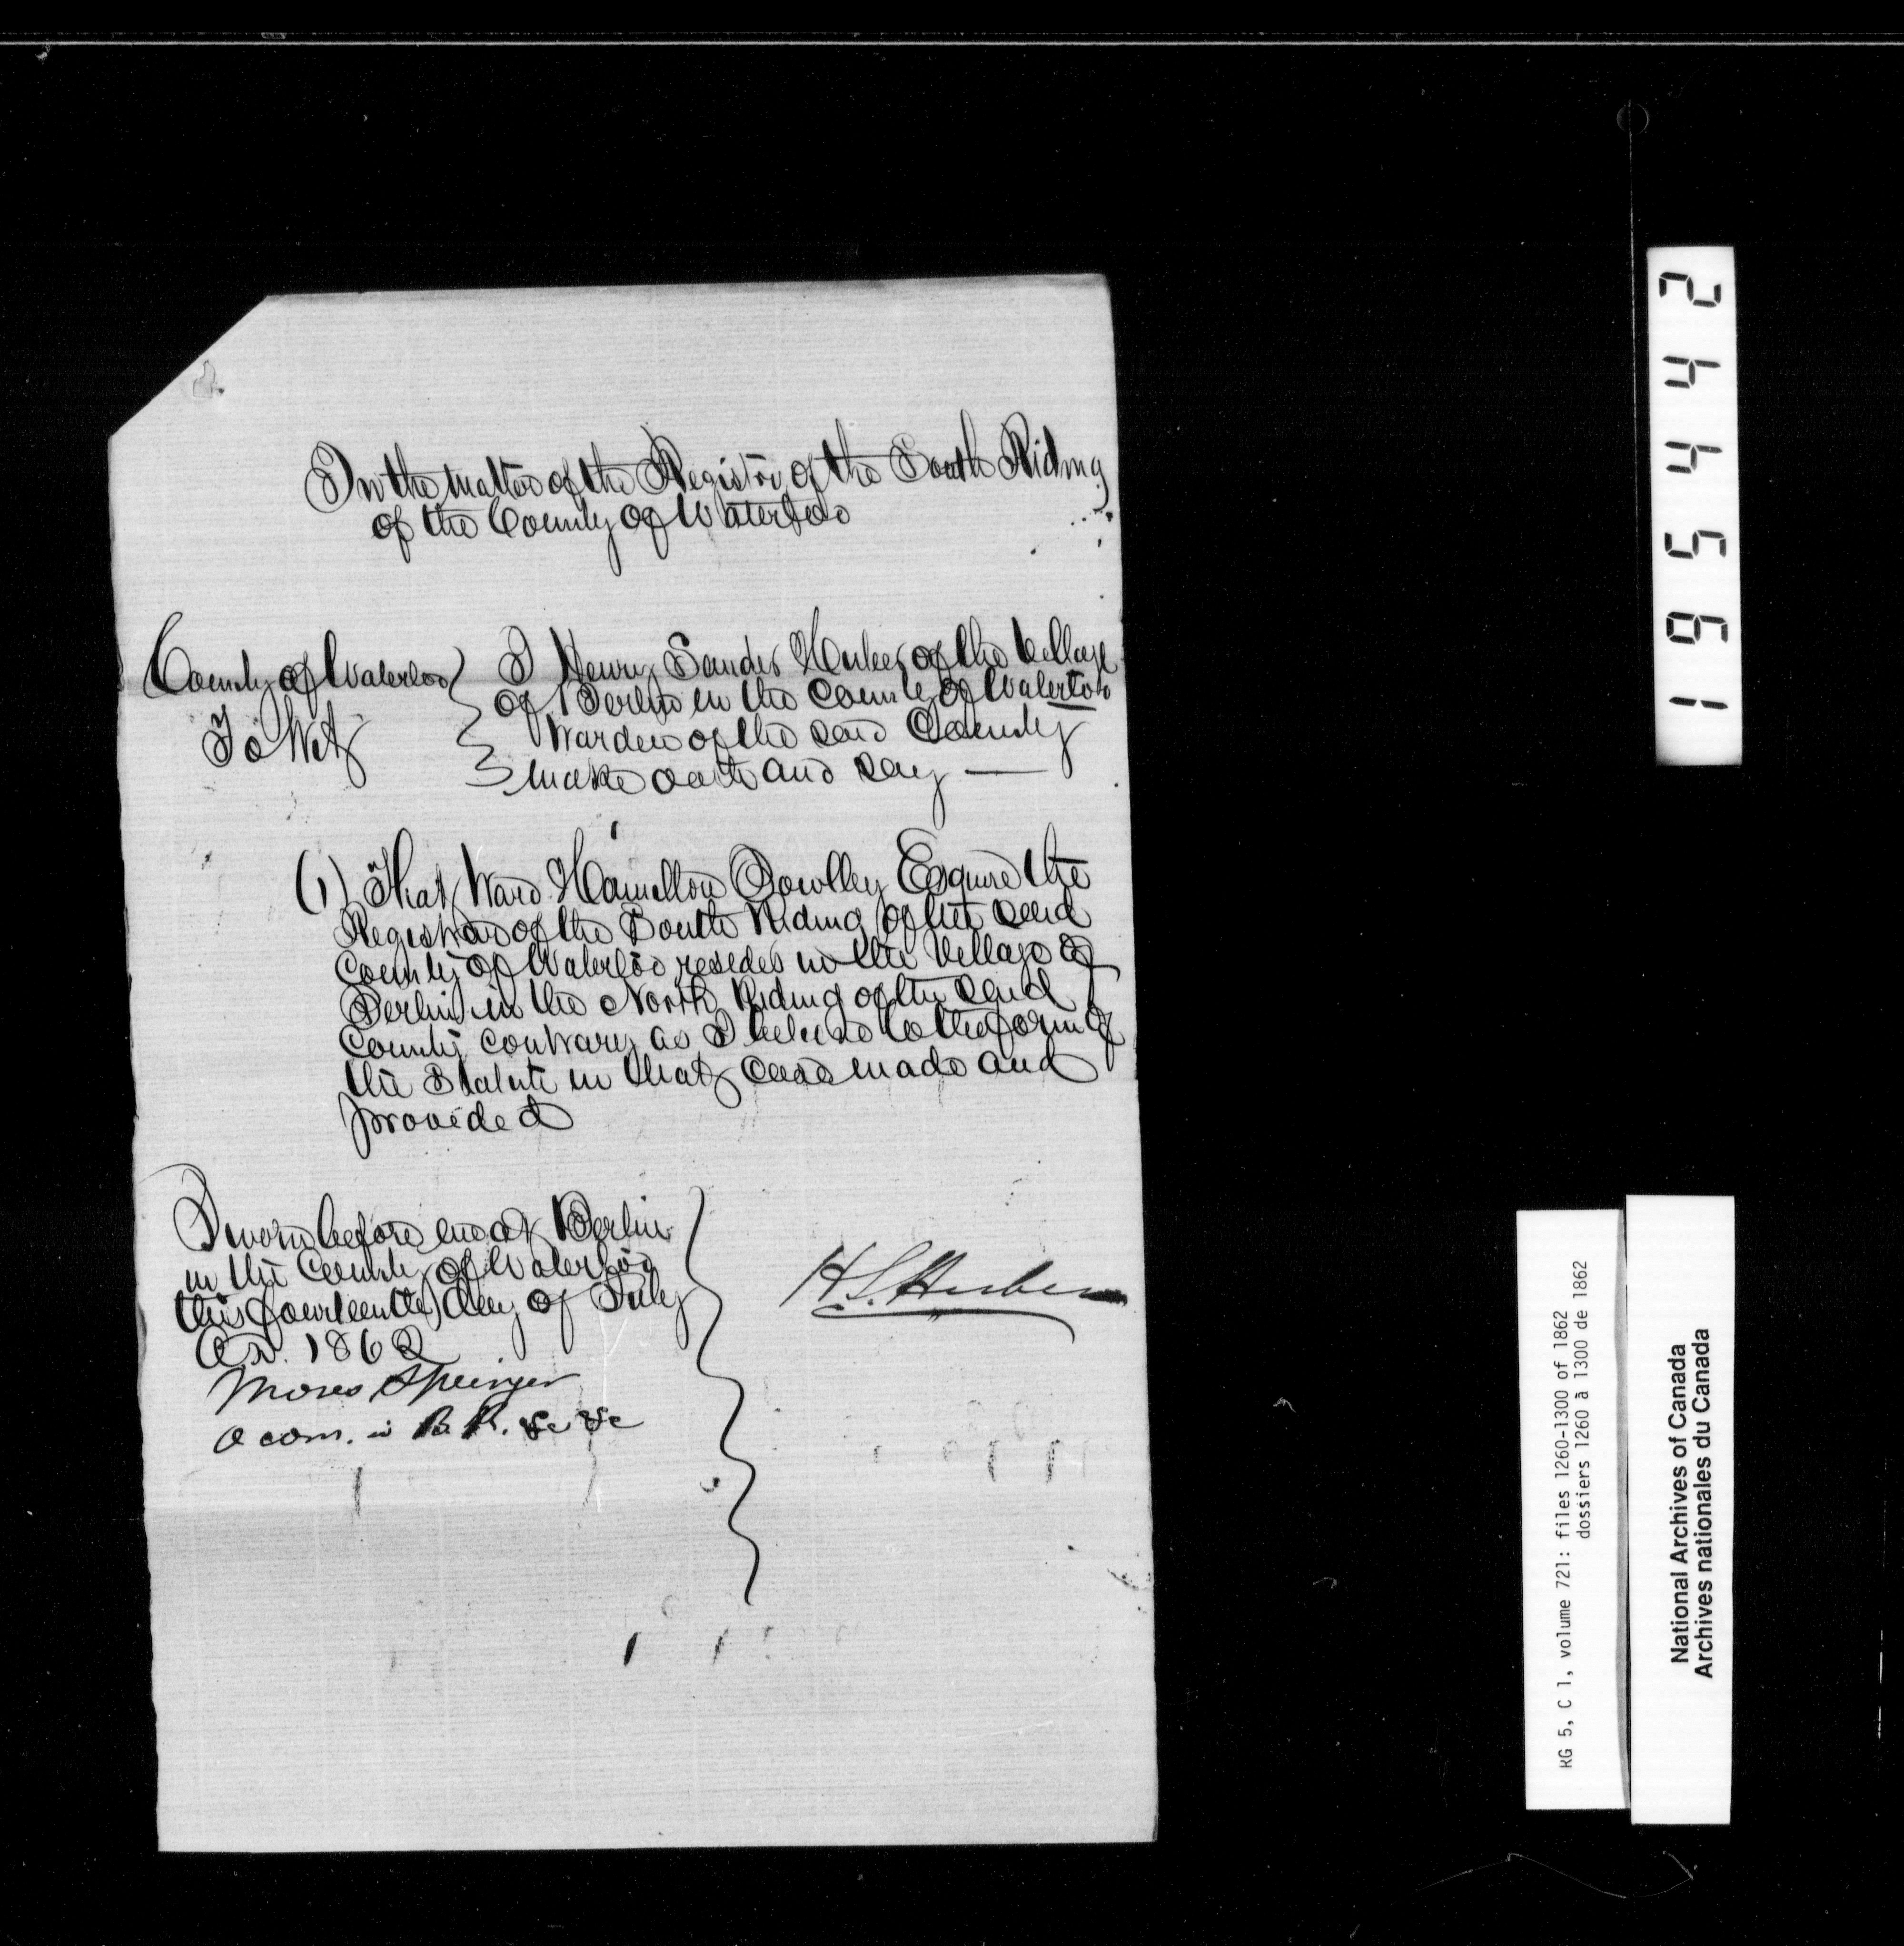 In the matter of the Registry of the South Riding
of the County of Waterloo
County of Waterloo
To Wit
I Henry Sander Huber of the Village
of Berlin in the County of Waterloo
Warden of the said County
make oath and say —
(1) That Ward Hamilton Bowlby Esquire the
Registrar of the South Riding of the said
County of Waterloo resides in the Village of
Berlin in the North Riding of the said
County contrary as I believe to the form of
the Statute in that case made and
provided
Sworn before me at Berlin
in the County of Waterloo
this fourteenth day of July
A.D. 1862
Moses Springer
A com. in B. R. &c &c
H. S. Huber
195442
RG 5, C 1, volume 721: files 1260-1300 of 1862
dossiers 1260 à 1300 de 1862
National Archives of Canada
Archives nationales du Canada